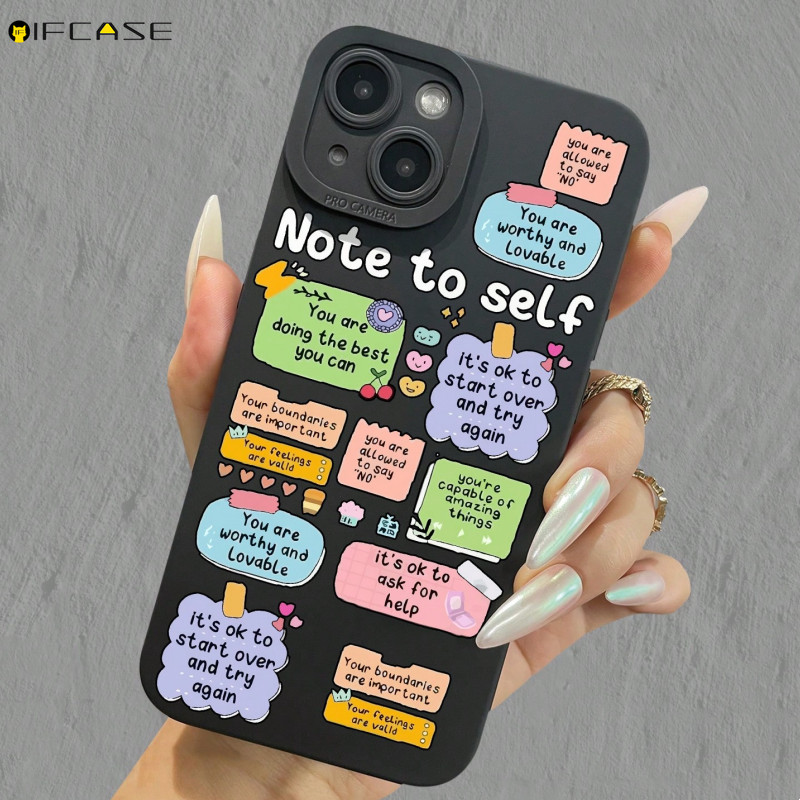 IFCASE
PRO CAMERA
you are
allowed
to say
"NO"
You are
worthy and
lovable
Note to self
You are
doing the best
you can
it's ok to
start over
and try
again
Your boundaries
are important
Your feelings
are valid
you are
allowed
to say
"NO"
you're
capable of
amazing
things
You are
worthy and
lovable
it's ok to
ask for
help
it's ok to
start over
and try
again
Your boundaries
are important
Your feelings
are valid